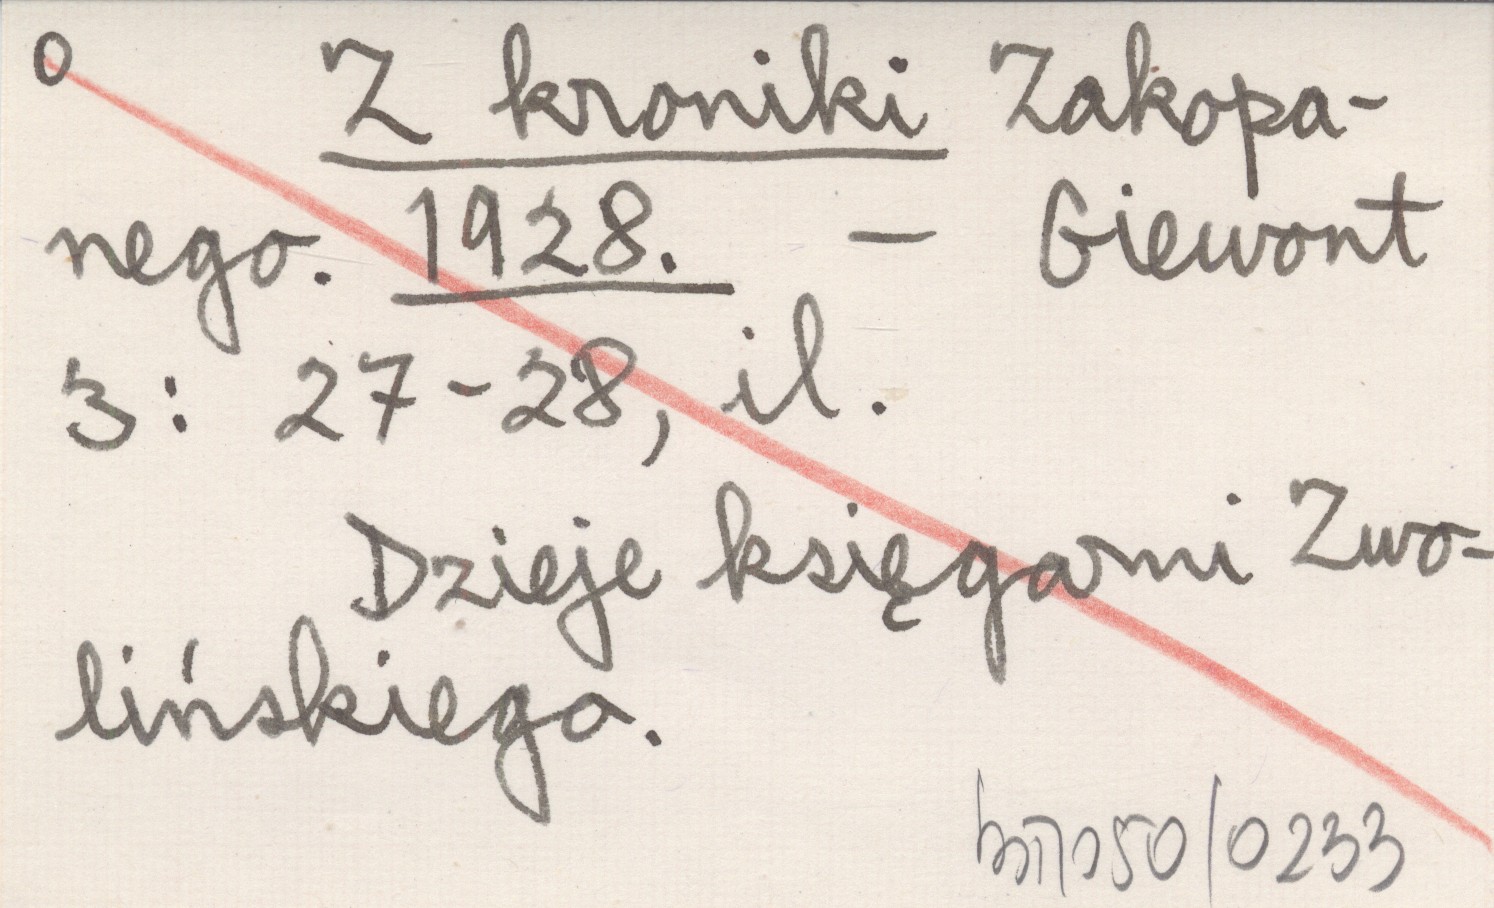 O Z kroniki Zakopa-
nego. 1928. — Giewont
3: 27-28, il.
Dzieje księgarni Zwo-
lińskiego.
50/0233